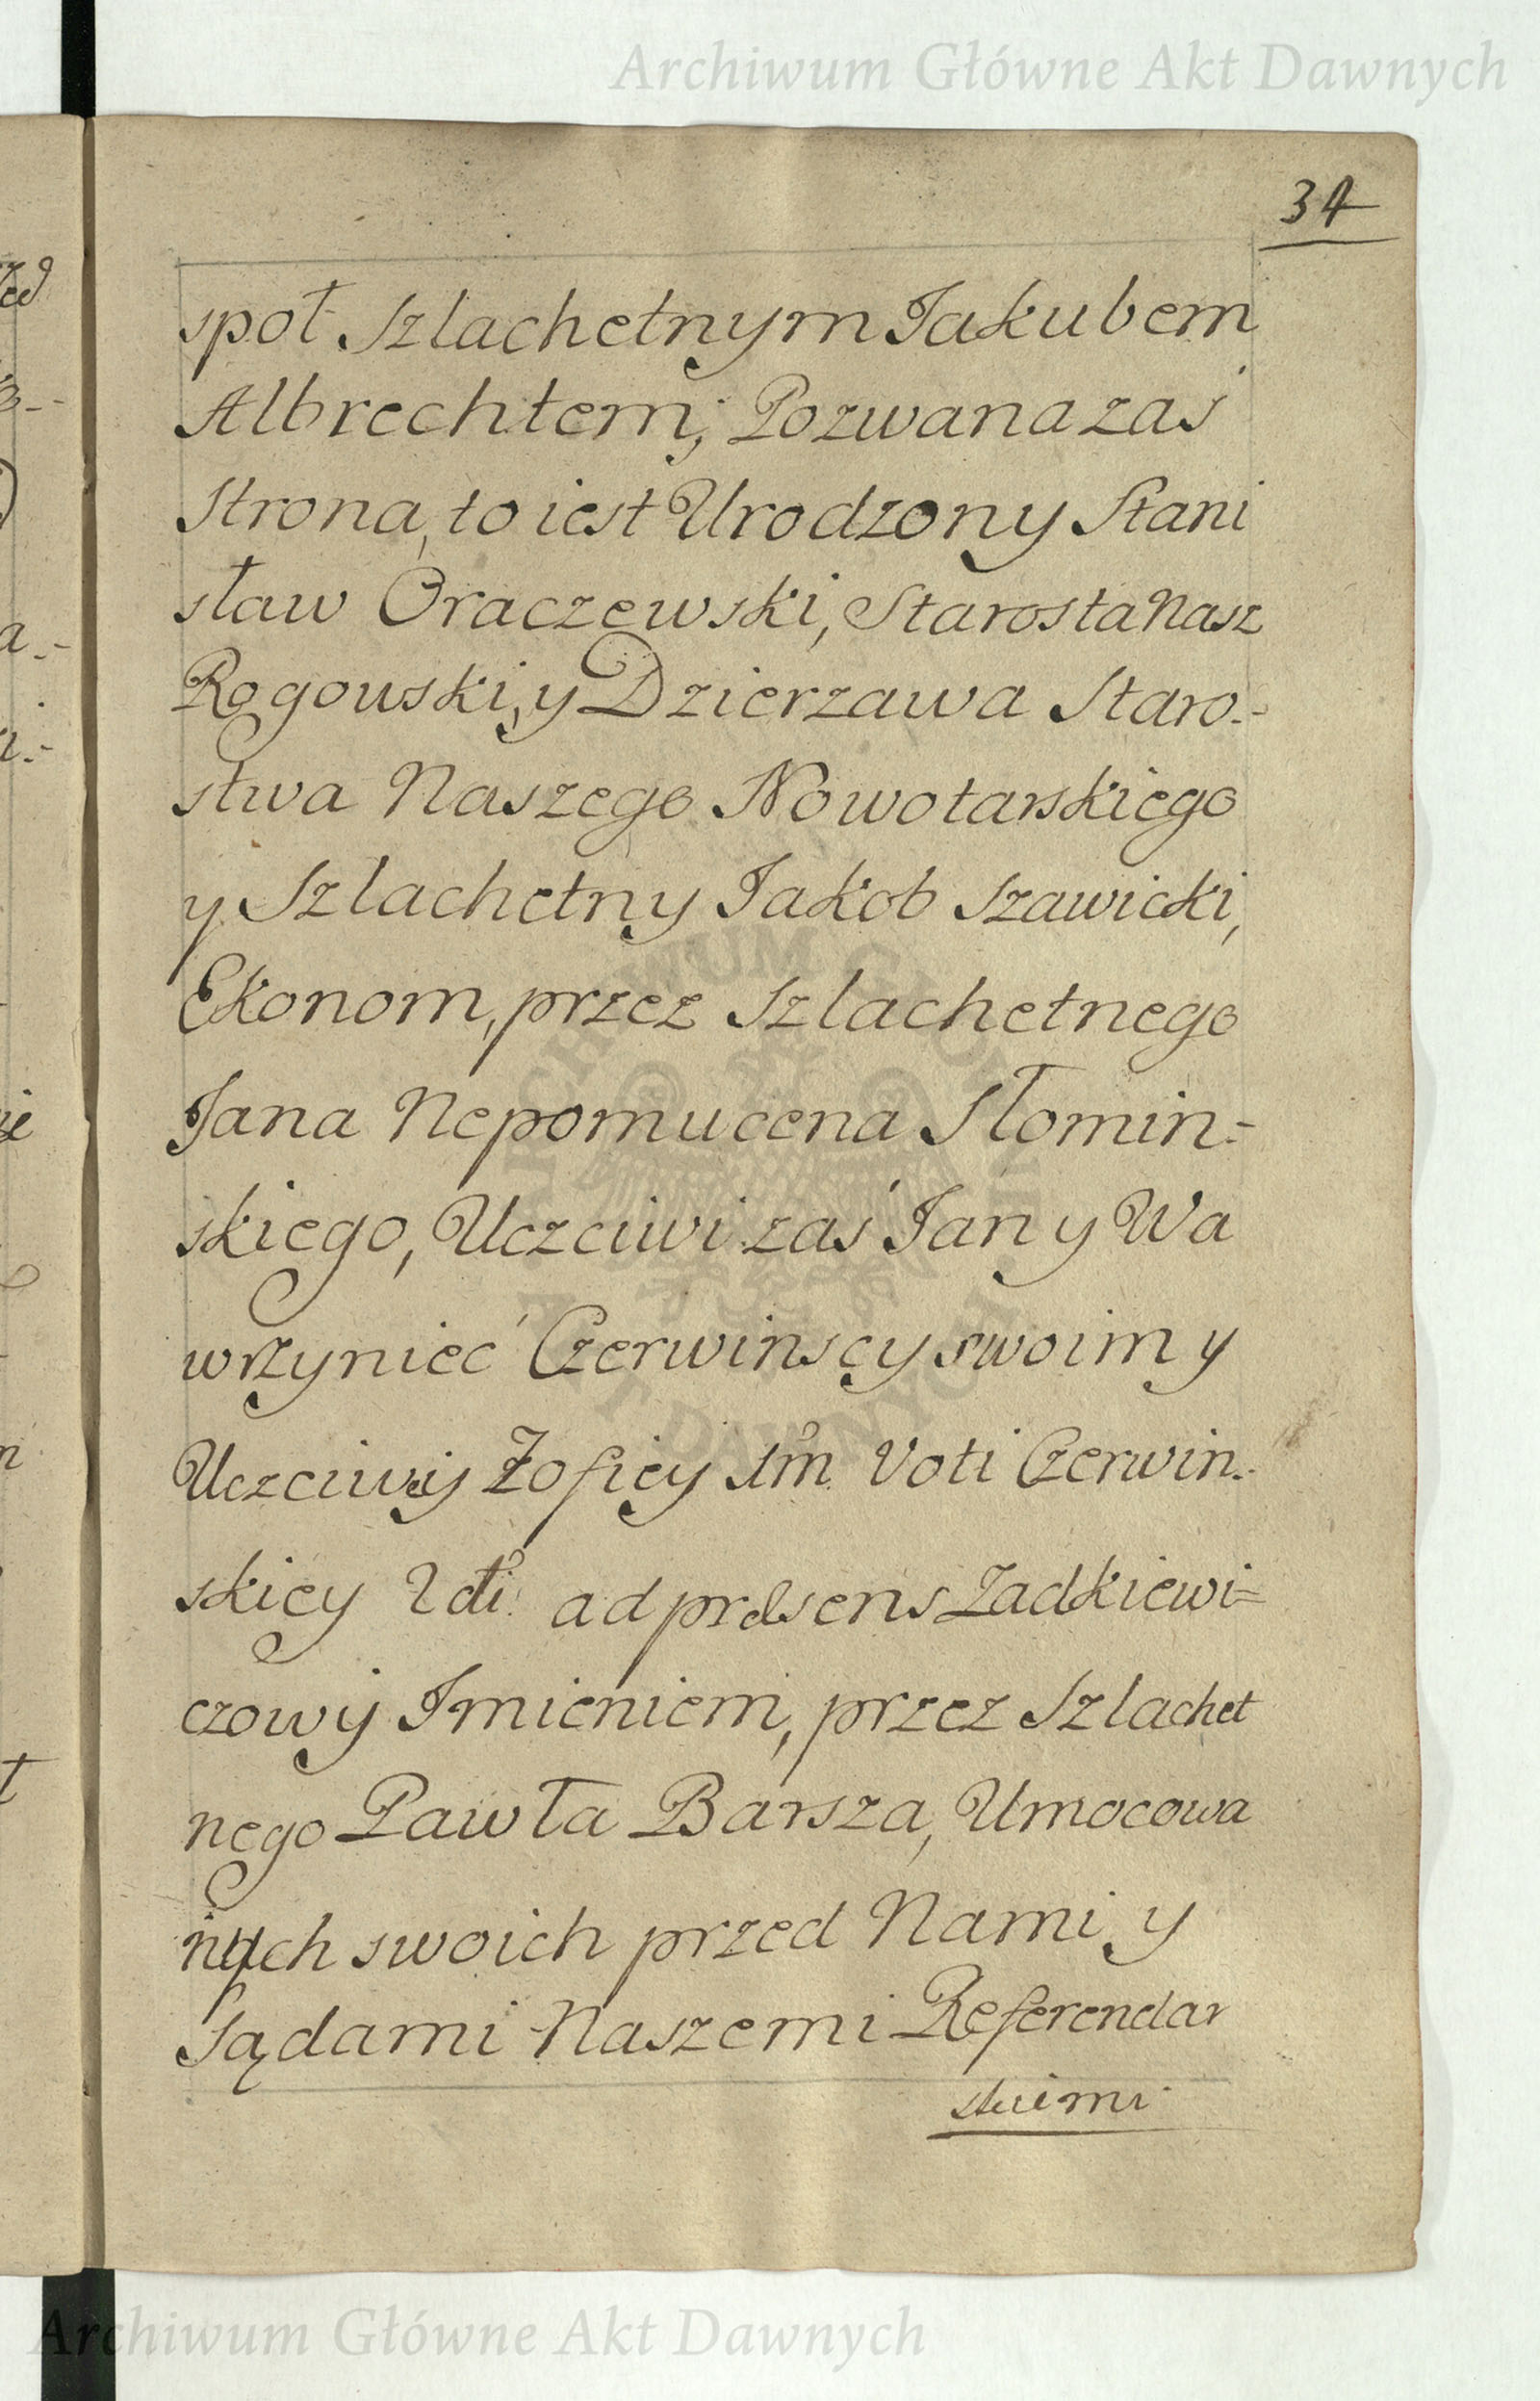 Archiwum Główne Akt Dawnych
34
społ Szlachetnym Jakubem
Albrechtem, Pozwana zaś
Strona, to iest Urodzony Stani
sław Oraczewski, Starosta Nasz
Rogowski, y Dzierzawa Staro-
stwa Naszego Nowotarskiego
y Szlachetny Jakob Szawicki,
Ekonom, przez Szlachetnego
Jana Nepomucena Słomin-
skiego, Uczciwi zaś Jan y Wa
wrzyniec Czerwinscy swoim y
Uczciwey Zofiey 1mo Voti Czerwin-
skiey 2do ad præsens Zadkiewi=
czowy Jmieniem, przez Szlachet
nego Pawła Barsza, Umocowa
nych swoich przed Nami y
Sądami Naszemi Referendar
skiemi
Archiwum Główne Akt Dawnych